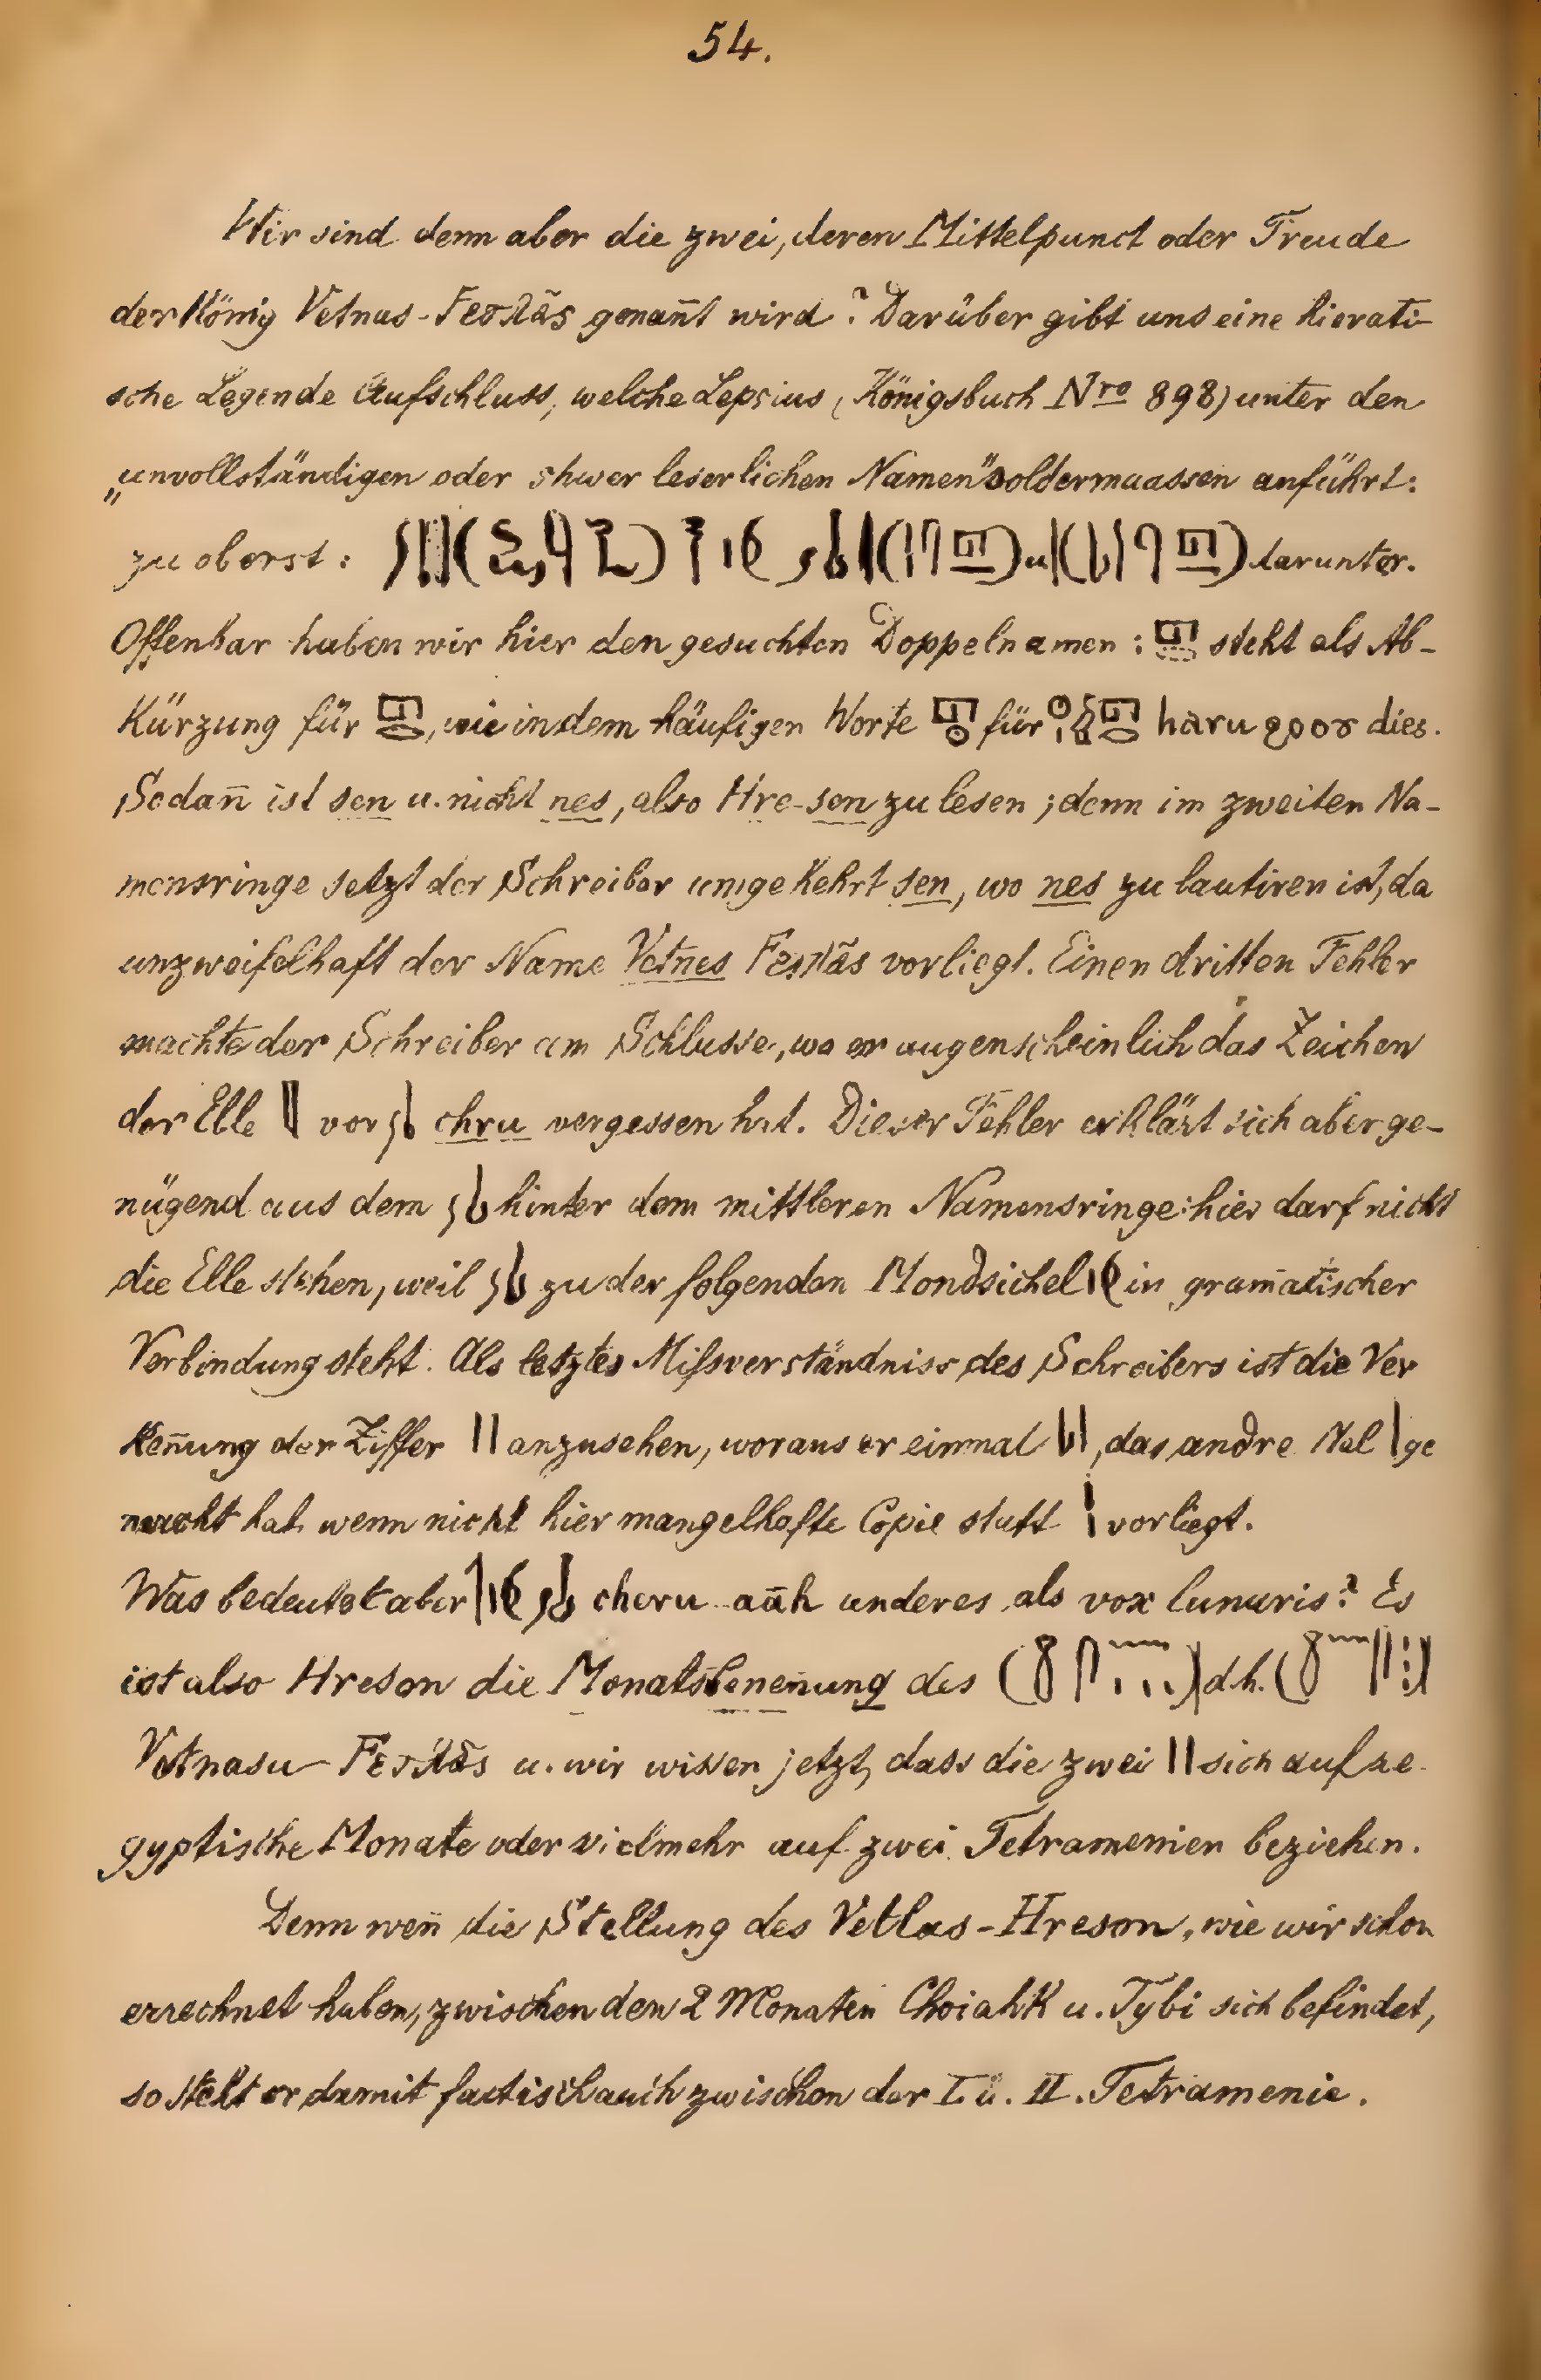 54.
Wir sind denn aber die zwei, deren Mittelpunct oder Freude
der König Vetnas - genan̄t wird? Darüber gibt uns eine hierati-
sche Legende Aufschluss, welche Lepsius (Königsbuch Nro 898) unter den
„unvollständigen oder schwer leserlichen Namen" soldermaassen anführt:
zu oberst: darunter.
Offenbar haben wir hier den gesuchten Doppelnamen: steht als Ab-
kürzung für , wie in dem häufigen Worte für haru ϩοοⲩ dies.
Sodan̄ ist sen u. nicht nes, also Hre-sen zu lesen; denn im zweiten Na-
mensringe setzt der Schreiber umgekehrt sen, wo nes zu lautiren ist, da
unzweifelhaft der Name Vetnes vorliegt. Einen dritten Fehler
machte der Schreiber am Schlusse, wo er augenscheinlich das Zeichen
der Elle vor chru vergessen hat. Dieser Fehler erklärt sich aber ge-
nügend aus dem hinter dem mittleren Namensringe: hier darf nicht
die Elle stehen, weil zu der folgenden Mondsichel in gram̄atischer
Verbindung steht. Als letztes Missverständniss des Schreibers ist die Ver
ken̄ung der Ziffer || anzusehen, woraus er einmal , das andre Mal | ge
macht hat wenn nicht hier mangelhafte Copie statt vorliegt.
Was bedeutet aber cheru aāh anderes als vox lunaris? Es
ist also Hreson die Monatsbenen̄ung des d.h.
Vetnasu- u. wir wissen jetzt, dass die zwei || sich auf ae-
gyptische Monate oder vielmehr auf zwei Tetramenien beziehen.
Denn wen̄ die Stellung des Vetlas-Hreson, wie wir schon
errechnet haben, zwischen den 2 Monaten Choiahk u. Tybi sich befindet,
so steht er damit factisch auch zwischen der I. u. II. Tetramenie.